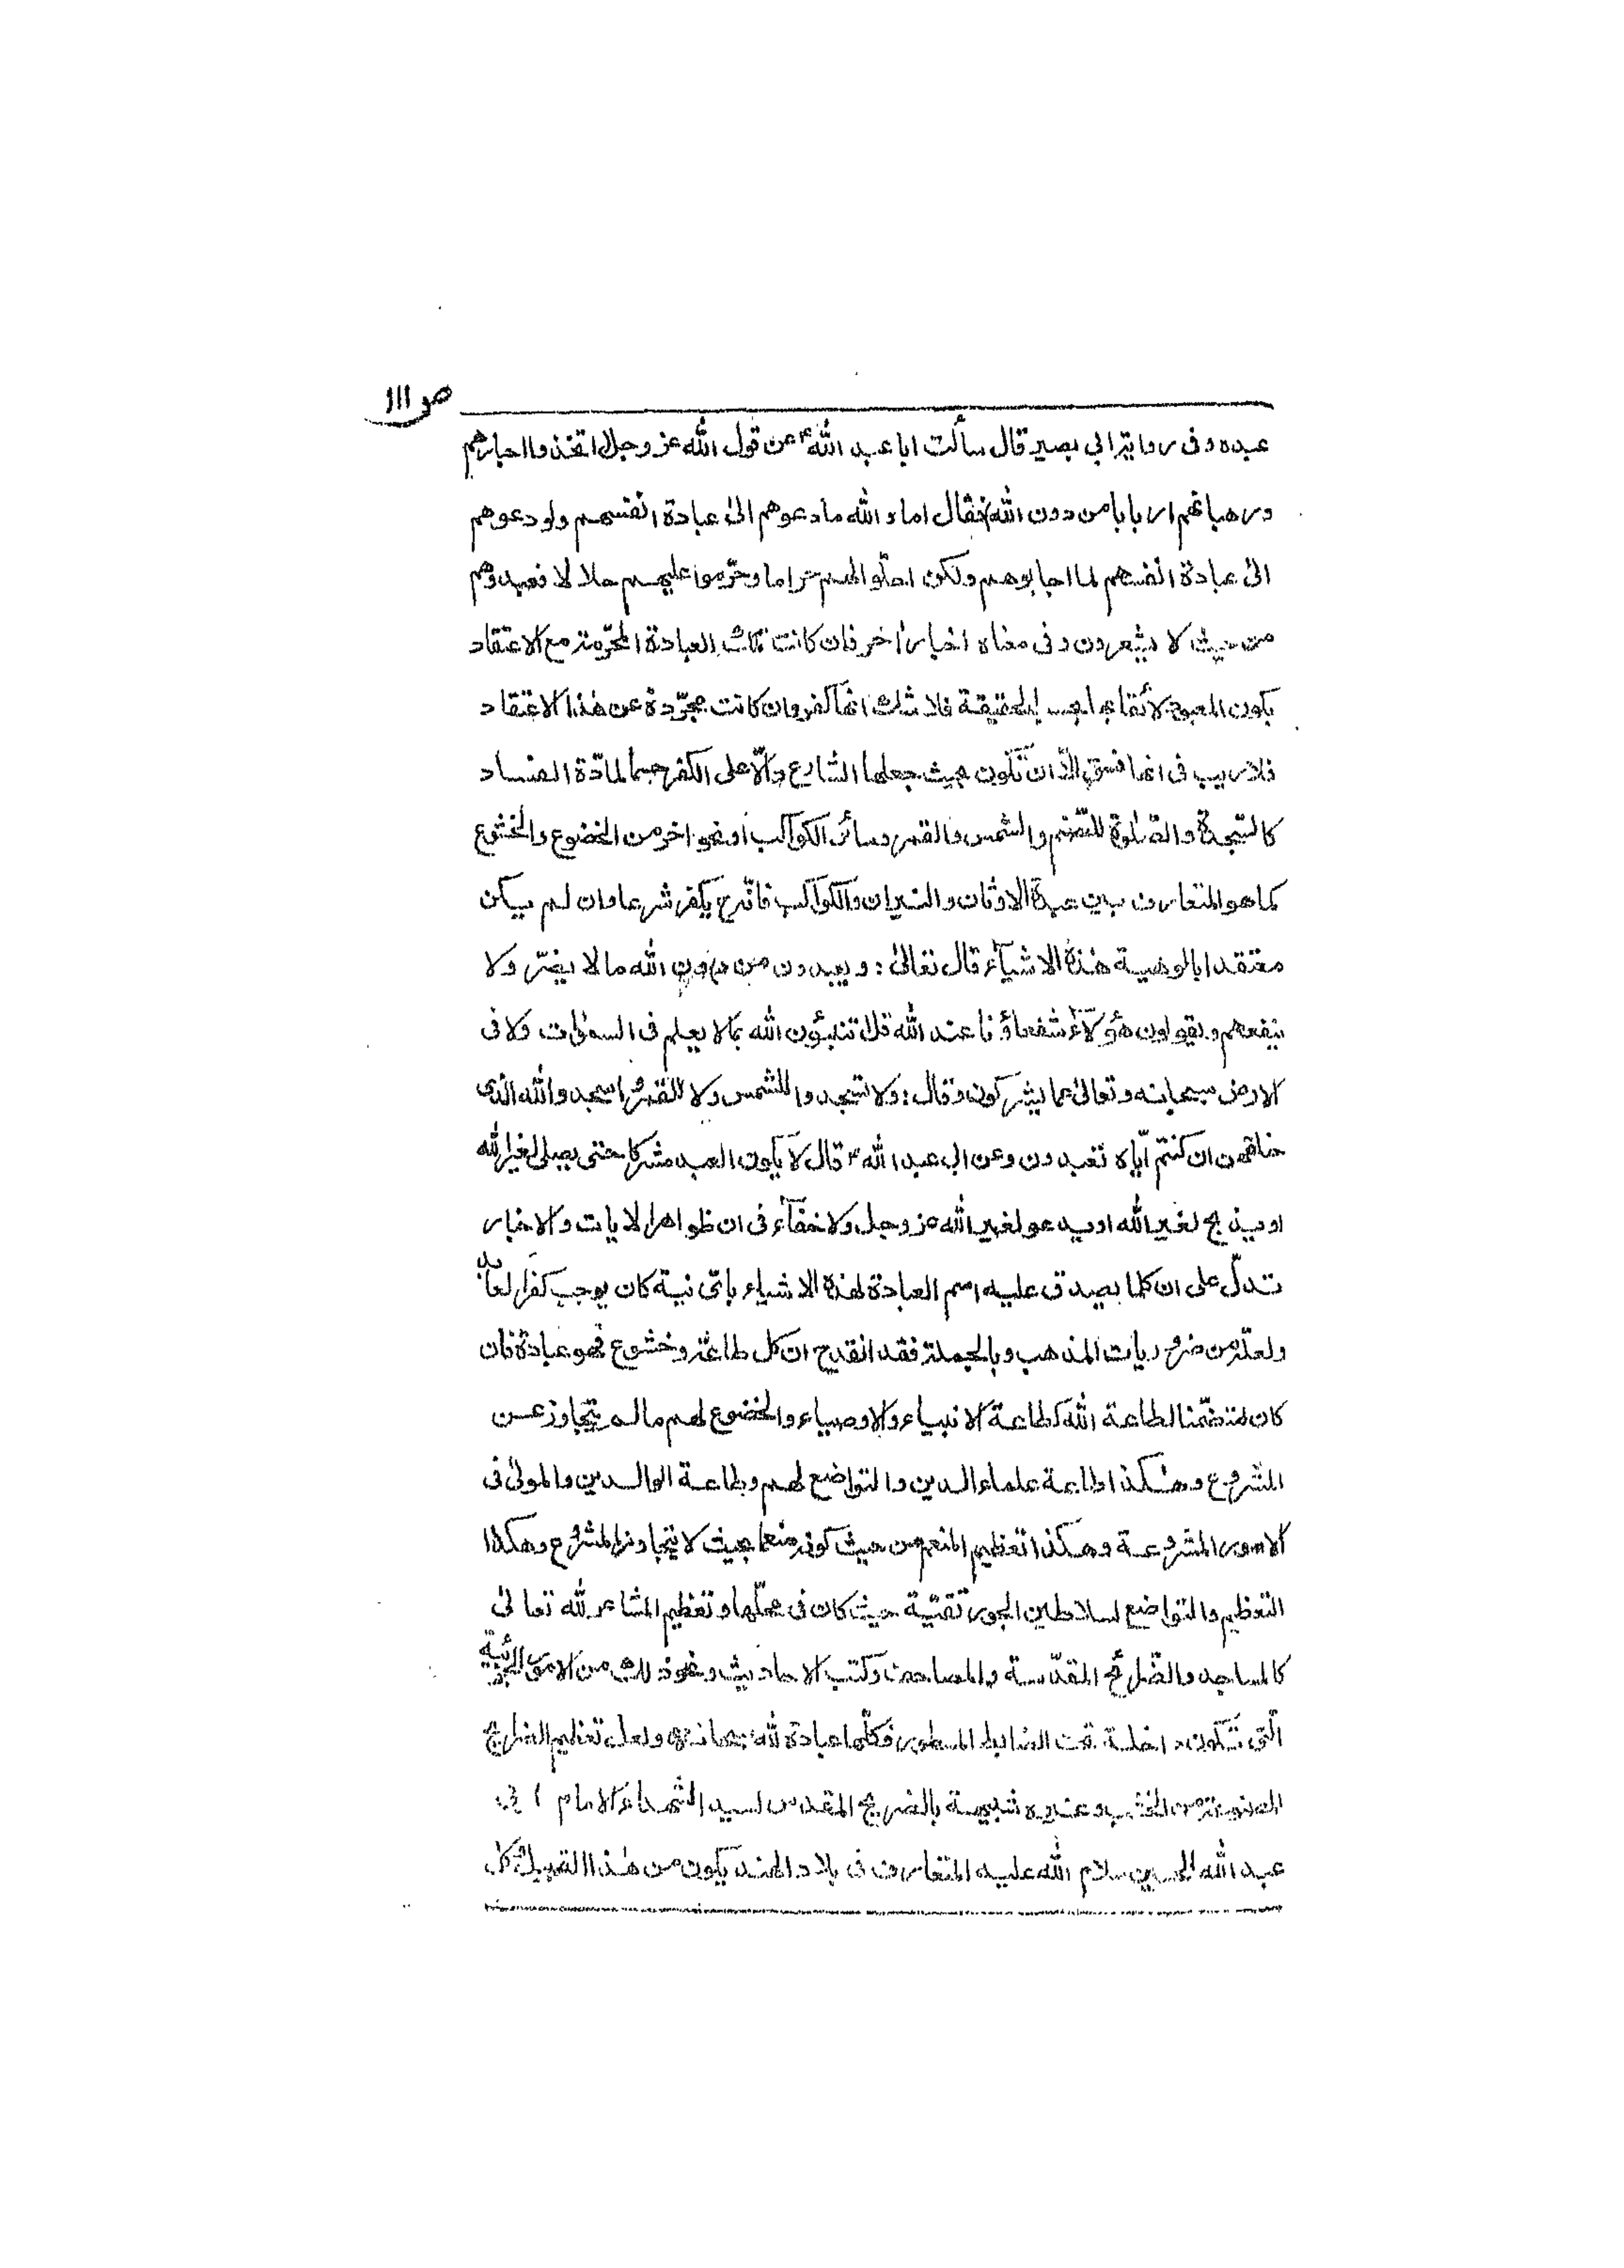 ص ١١١
عبده وفى رواية ابي بصير قال سألت ابا عبد اللهؑ عن قول الله عز وجل اتخذوا احبارهم
ورهبانهم اربابا من دون الله فقال اما والله ما دعوهم الى عبادة انفسهم ولو دعوهم
الى عبادة انفسهم لما اجابوهم ولكن احلّوا لهم حراما وحرّموا عليهم حلالا فعبدوهم
من حيث لا يشعرون وفى معناه اخبار اخر فان كانت تلك العبادة المحرّمة مع الاعتقاد
بكون المعبود لائقا بها فى الحقيقة فلا شك انها كفر وان كانت مجرّدة عن هذا الاعتقاد
فلا ريب فى انها فسق الّا ان تكون بحيث جعلها الشارع دالّا على الكفر حسما لمادّة الفساد
كالسّجدة والصّلوة للصّنم والشمس والقمر وسائر الكواكب او نحو اخر من الخضوع والخشوع
كما هو المتعارف بين عبدة الاوثان والنيران والكواكب فانّه ح يكفر شرعا وان لم يكن
معتقدا بالوهية هذه الاشيآء قال تعالى: ويعبدون من دون الله ما لا يضرّ ولا
ينفعهم ويقولون هؤلآء شفعاؤنا عند الله قل اتنبؤن الله بما لا يعلم فى السموات ولا فى
الارض سبحانه وتعالى عما يشركون وقال: ولا تسجدوا للشمس ولا للقمر واسجدوا لله الذى
خلقهن ان كنتم ايّاه تعبدون وعن ابى عبد اللهؑ قال لا يكون العبد مشركا حتى يصلى لغير الله
او يذبح لغير الله او يدعو لغير الله عز وجل ولا خفآء فى ان ظواهر الايات والاخبار
تدلّ على ان كلما يصدق عليه اسم العبادة لهذه الاشياء باىّ نية كان يوجب كفر العابد
ولعلّه من ضروريات المذهب وبالجملة فقد انقدح ان كل طاعة وخشوع فهو عبادة فان
كان متضمّنا لطاعة الله كطاعة الانبياء والاوصياء والخضوع لهم ما لم يتجاوز عن
المشروع وهكذا اطاعة علماء الدين والتواضع لهم وطاعة الوالدين والمولى فى
الامور المشروعة وهكذا تعظيم المنعم من حيث كونه منعما بحيث لا يتجاوز المشروع وهكذا
التعظيم والتواضع لسلاطين الجور تقيّة حيث كان فى محلّها وتعظيم المشاعر لله تعالى
كالمساجد والضّرائح المقدّسة والمصاحف وكتب الاحاديث ونحو ذلك من الامور
الّتى تكون داخلة تحت الضابط المسطور فكلّها عبادة لله سبحانه ولعل تعظيم الضرايح
المصنوعة من الخشب وغيره شبيهة بالضريح المقدس لسيد الشهداء الامام ابى
عبد الله الحسين سلام الله عليه المتعارف فى بلاد الهند يكون من هذا القبيل كل